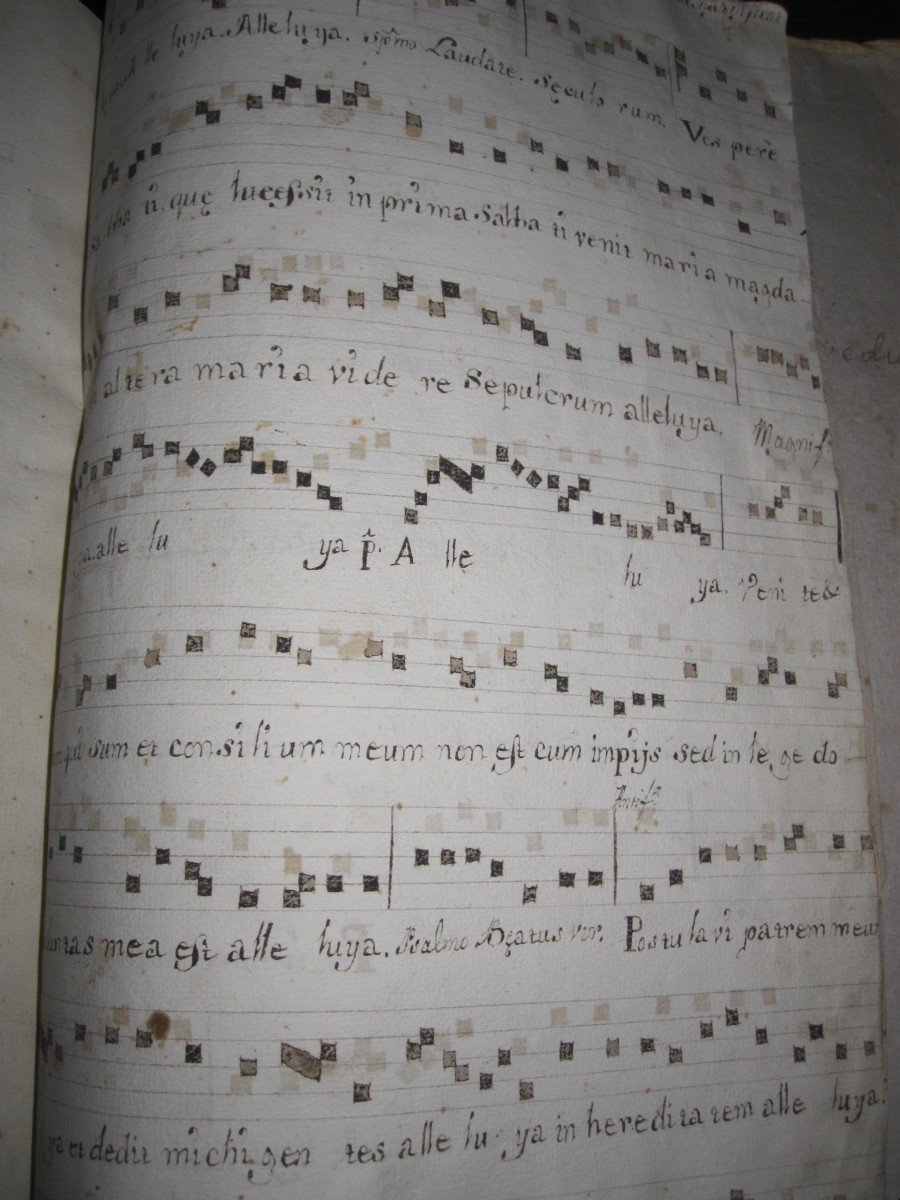 Alle luya. Alleluya. Laudate. Seculo rum. Ves pere
sa bba ti. que lucessit in prima Sabba ti venit maria magda
altera maria vide re Sepulcrum alleluya. Magnif.
ya. alle lu ya p. A lle lu ya. Veni te &
sum et consilium meum non est cum impijs sed in le ge do
Antif.ª
luntas mea est alle luya. Psalmo Beatus vir. Postulavi patrem meum
ya et dedit michi gen tes alle lu ya in heredita tem alle luya.